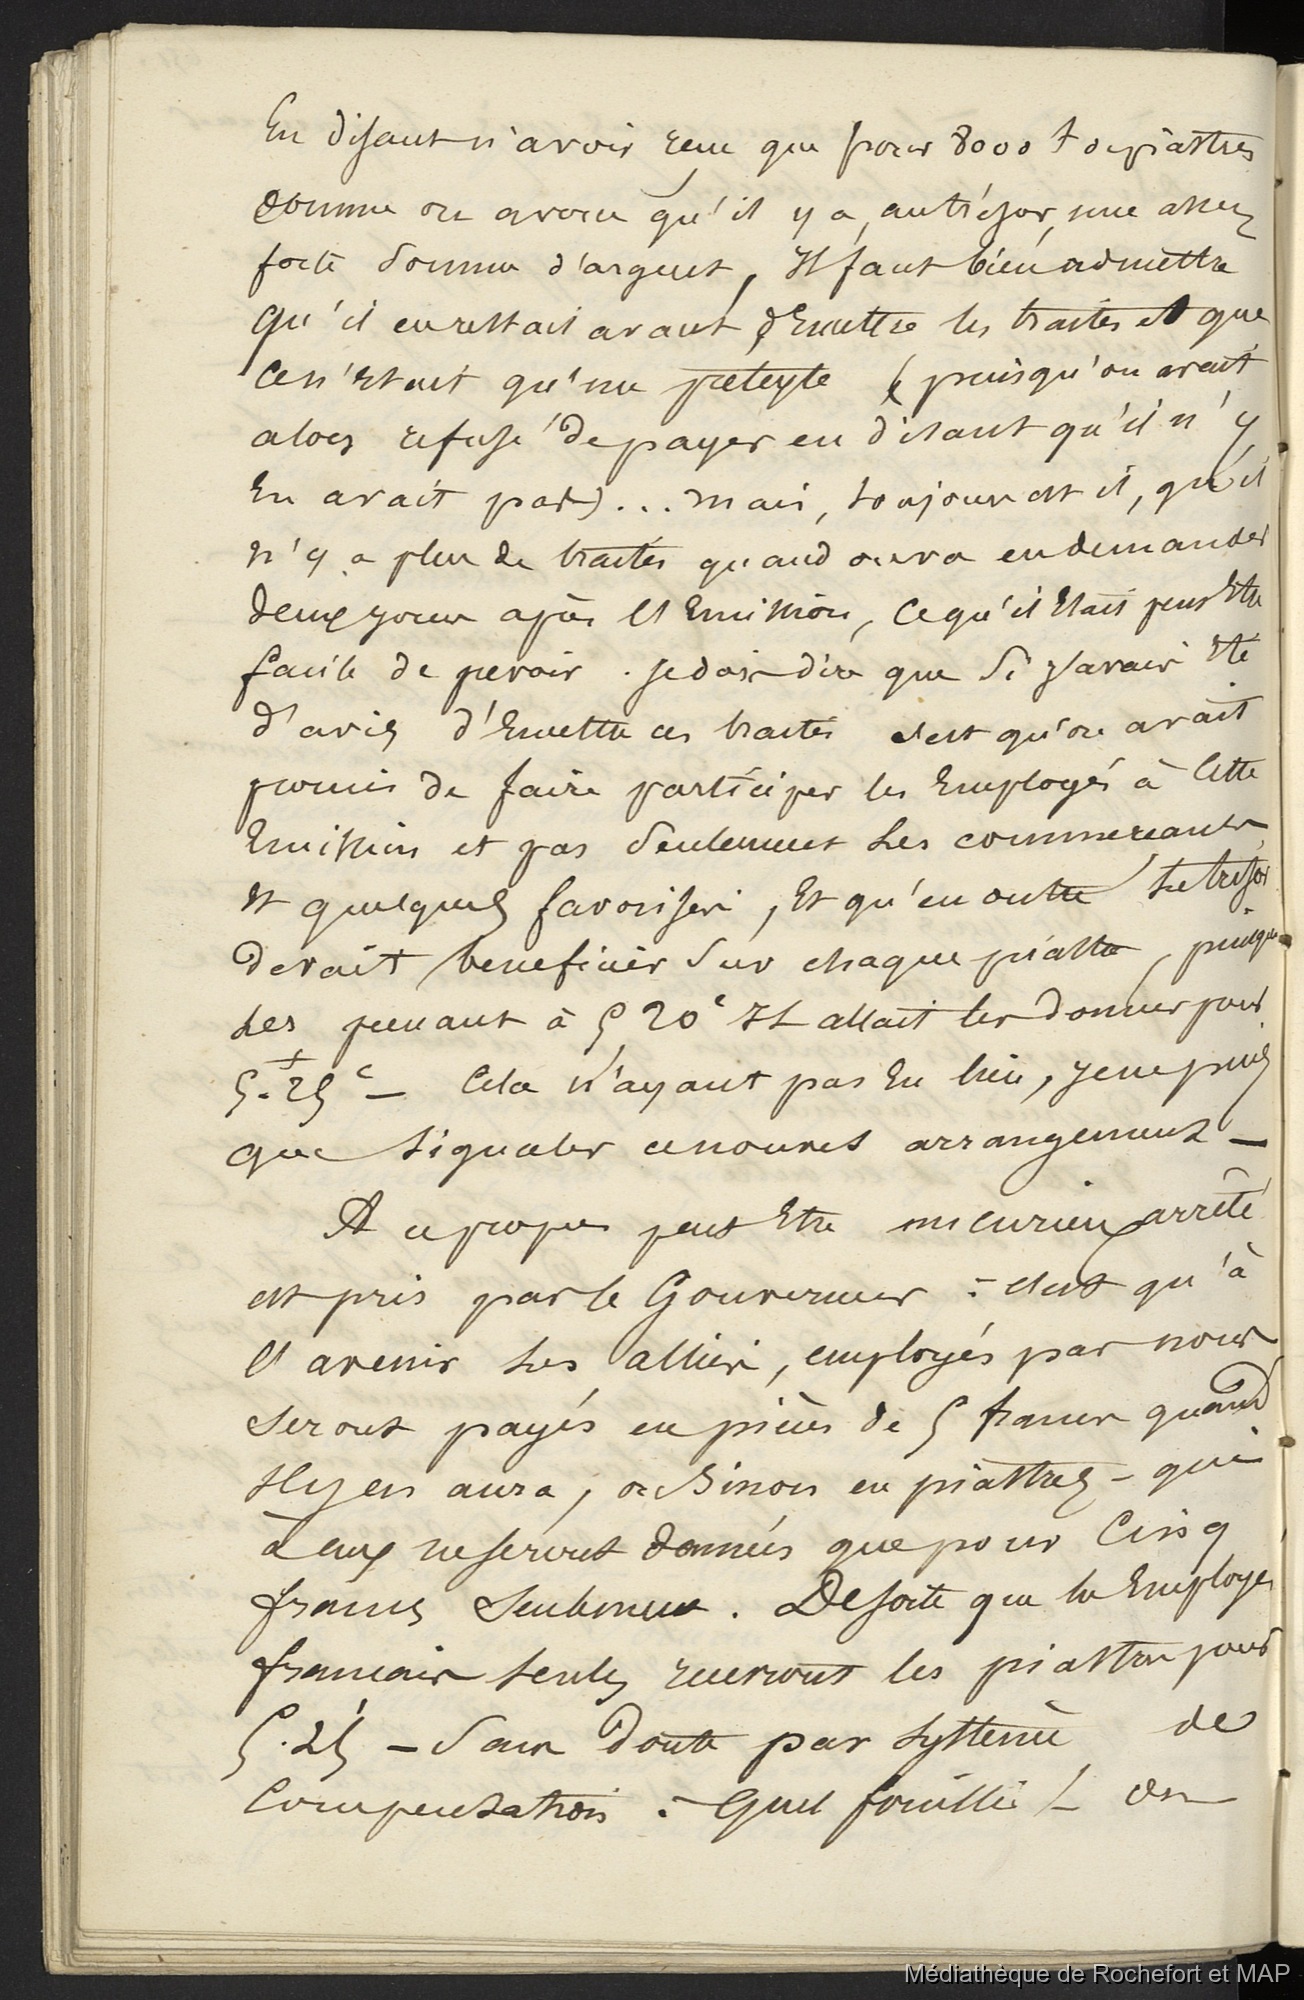 En disant n'avoir reçu que pour 8000 f de piastres
comme on avoue qu'il y a, au trésor, une assez
forte somme d'argent, Il faut bien admettre
qu'il en restait avant d'Emettre les traites et que
ce n'Etait qu'un pretexte (puisqu'on avait
alors refusé de payer en disant qu'il n'y
En avait pas)... mais, toujours est il, qu'il
n'y a plus de traites quand on va en demander
deux jours après l'Emission, ce qu'il Etait peut Etre
facile de prevoir. Je dois dire que Si j'avais Eté
d'avis d'Emettre ces traites c'est qu'on avait
promis de faire participer les Employés à Cette
Emission et pas Seulement Les commercants
Et quelques favorisés, Et qu'en outre Le trésor
devait beneficier Sur chaque piastre, puisque
Les prenant à 5 20c Il allait les donner pour
5f.25c – Cela n'ayant pas Eu lieu, je ne puis
que Signaler ce nouvel arrangement –
A ce propos peut Etre un curieux arrêté
est pris par le Gouverneur :– c'est qu'à
l'avenir Les alliés, employés par nous
Seront payés en pièces de 5 francs quand
Il y en aura, ou Sinon en piastres – qui
à eux ne seront données que pour Cinq
francs Seulement. De sorte que les Employés
francais Seuls recevront les piastres pour
5.25 – Sans doute par Système de
Compensation :– Quel fouillis ! – on